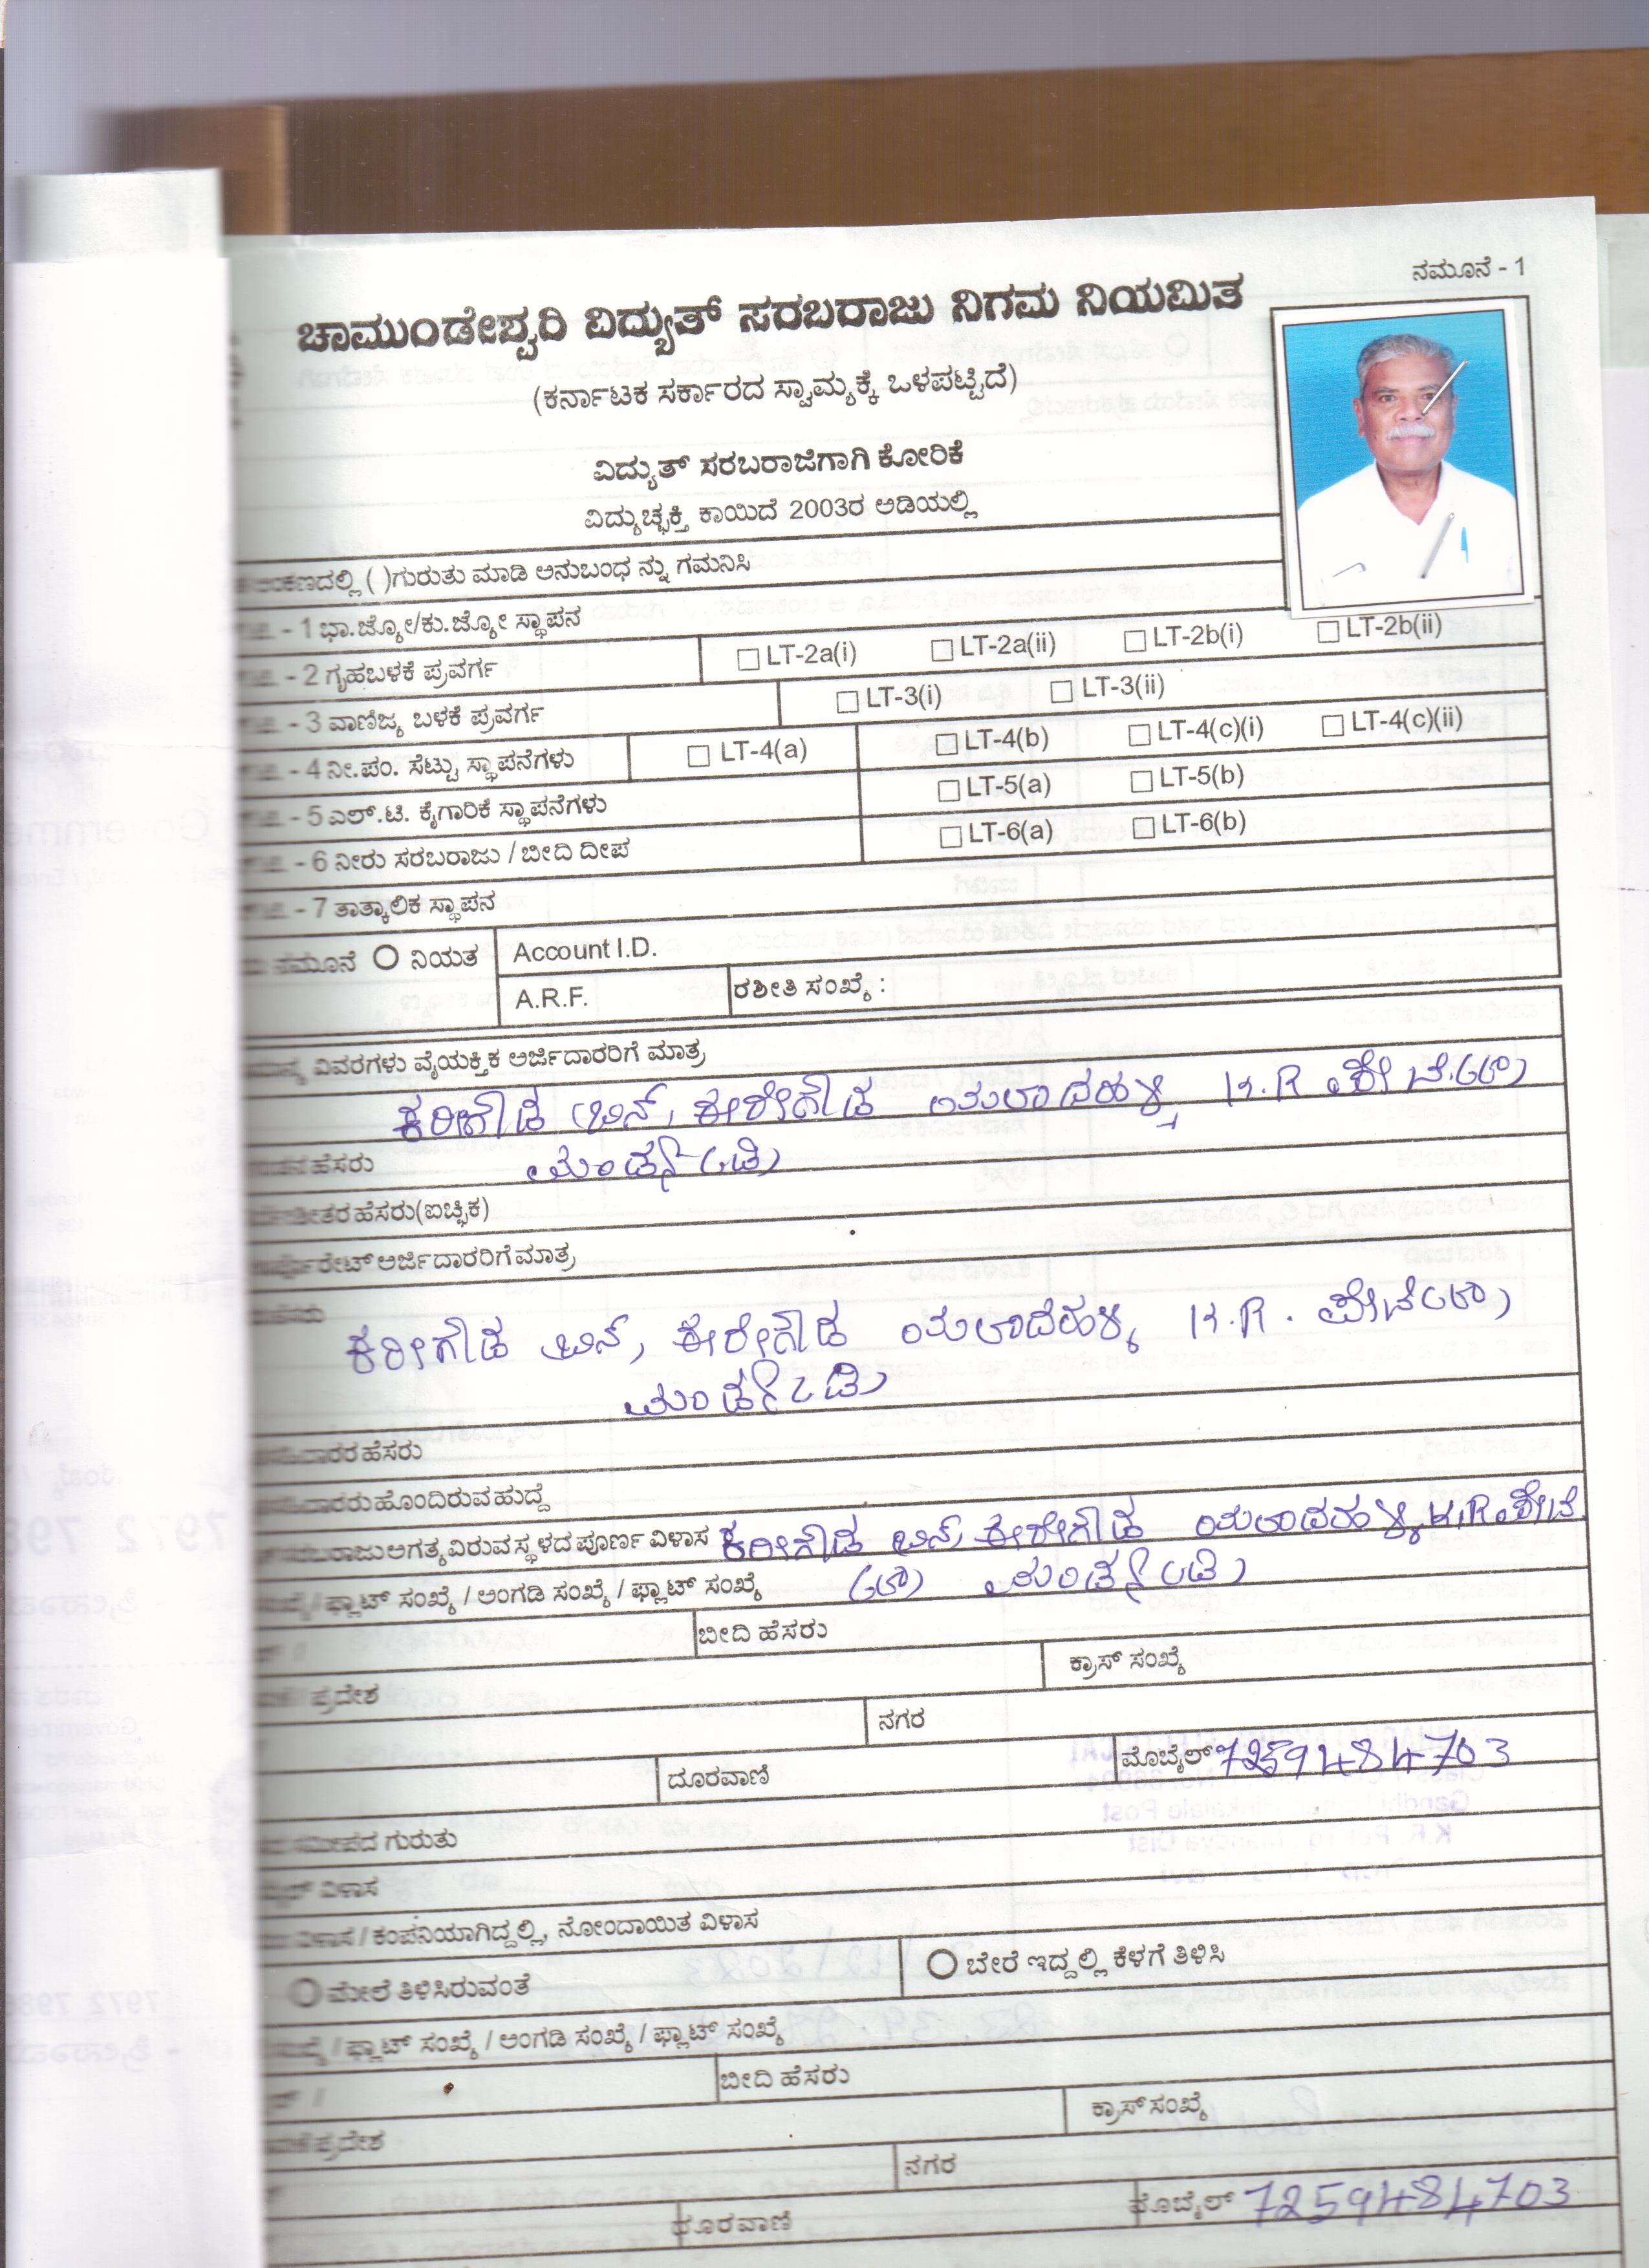 ನಮೂನೆ - 1
ಚಾಮುಂಡೇಶ್ವರಿ ವಿದ್ಯುತ್ ಸರಬರಾಜು ನಿಗಮ ನಿಯಮಿತ
(ಕರ್ನಾಟಕ ಸರ್ಕಾರದ ಸ್ವಾಮ್ಯಕ್ಕೆ ಒಳಪಟ್ಟಿದೆ)
ವಿದ್ಯುತ್ ಸರಬರಾಜಿಗಾಗಿ ಕೋರಿಕೆ
ವಿದ್ಯುಚ್ಛಕ್ತಿ ಕಾಯಿದೆ 2003ರ ಅಡಿಯಲ್ಲಿ
ಅಂಕಣದಲ್ಲಿ ( )ಗುರುತು ಮಾಡಿ ಅನುಬಂಧ ನ್ನು ಗಮನಿಸಿ
- 1 ಭಾ.ಜ್ಯೋ/ಕು.ಜ್ಯೋ ಸ್ಥಾಪನ
- 2 ಗೃಹಬಳಕೆ ಪ್ರವರ್ಗ LT-2a(i) LT-2a(ii) LT-2b(i) LT-2b(ii)
- 3 ವಾಣಿಜ್ಯ ಬಳಕೆ ಪ್ರವರ್ಗ LT-3(i) LT-3(ii)
- 4 ನೀ.ಪಂ. ಸೆಟ್ಟು ಸ್ಥಾಪನೆಗಳು LT-4(a) LT-4(b) LT-4(c)(i) LT-4(c)(ii)
- 5 ಎಲ್.ಟಿ. ಕೈಗಾರಿಕೆ ಸ್ಥಾಪನೆಗಳು LT-5(a) LT-5(b)
- 6 ನೀರು ಸರಬರಾಜು / ಬೀದಿ ದೀಪ LT-6(a) LT-6(b)
- 7 ತಾತ್ಕಾಲಿಕ ಸ್ಥಾಪನ
ನಮೂನೆ ನಿಯತ Account I.D.
A.R.F. ರಶೀತಿ ಸಂಖ್ಯೆ :
ವಿವರಗಳು ವೈಯಕ್ತಿಕ ಅರ್ಜಿದಾರರಿಗೆ ಮಾತ್ರ
ಕರೀಗೌಡ ಬಿನ್, ಈರೇಗೌಡ ಯಲಾದಹಳ್ಳಿ K.R ಪೇಟೆ(ತಾ)
ಹೆಸರು ಮಂಡ್ಯ (ಡಿ)
ಹೆಸರು(ಐಚ್ಛಿಕ)
ಅರ್ಜಿದಾರರಿಗೆ ಮಾತ್ರ
ಕರೀಗೌಡ ಬಿನ್, ಈರೇಗೌಡ ಯಲಾದಹಳ್ಳಿ K.R. ಪೇಟೆ(ತಾ)
ಮಂಡ್ಯ (ಡಿ)
ಹೆಸರು
ಹೊಂದಿರುವ ಹುದ್ದೆ
ಅಗತ್ಯವಿರುವ ಸ್ಥಳದ ಪೂರ್ಣ ವಿಳಾಸ ಕರೀಗೌಡ ಬಿನ್, ಈರೇಗೌಡ ಯಲಾದಹಳ್ಳಿ K.R ಪೇಟೆ
/ ಫ್ಲಾಟ್ ಸಂಖ್ಯೆ / ಅಂಗಡಿ ಸಂಖ್ಯೆ / ಫ್ಲಾಟ್ ಸಂಖ್ಯೆ (ತಾ) ಮಂಡ್ಯ (ಡಿ)
ಬೀದಿ ಹೆಸರು
ಕ್ರಾಸ್ ಸಂಖ್ಯೆ
ಪ್ರದೇಶ
ನಗರ
ದೂರವಾಣಿ ಮೊಬೈಲ್ 7259484703
ಸಮೀಪದ ಗುರುತು
ವಿಳಾಸ
ವಿಳಾಸ / ಕಂಪನಿಯಾಗಿದ್ದಲ್ಲಿ, ನೋಂದಾಯಿತ ವಿಳಾಸ
ಮೇಲೆ ತಿಳಿಸಿರುವಂತೆ ಬೇರೆ ಇದ್ದಲ್ಲಿ ಕೆಳಗೆ ತಿಳಿಸಿ
/ ಫ್ಲಾಟ್ ಸಂಖ್ಯೆ / ಅಂಗಡಿ ಸಂಖ್ಯೆ / ಫ್ಲಾಟ್ ಸಂಖ್ಯೆ
ಬೀದಿ ಹೆಸರು
ಕ್ರಾಸ್ ಸಂಖ್ಯೆ
ಪ್ರದೇಶ
ನಗರ
ದೂರವಾಣಿ ಮೊಬೈಲ್ 7259484703